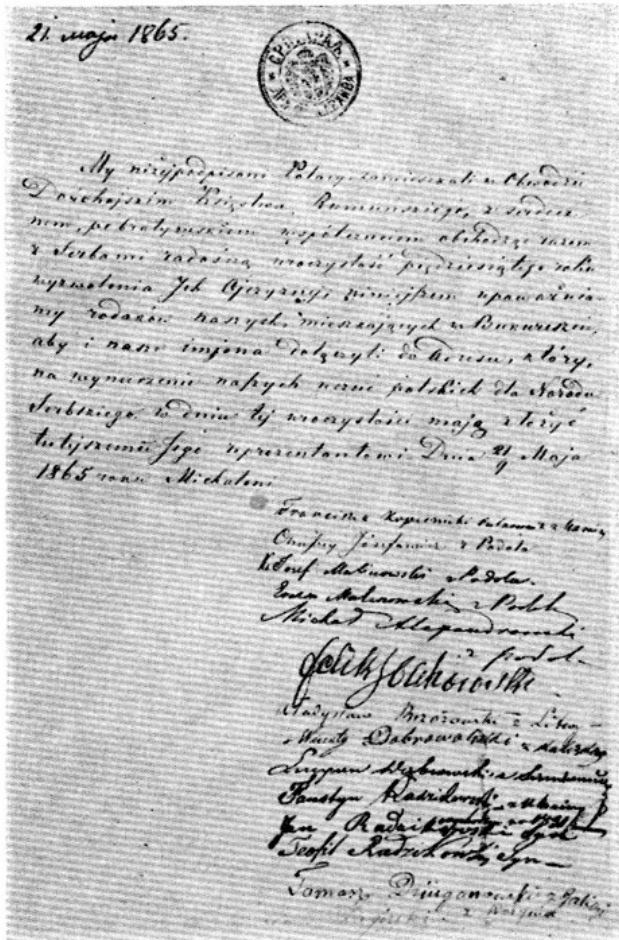 21. maja 1865.
My niżéj podpisani Polacy zamieszkali w Obwodzie
Dorohojskim Księstwa Rumuńskiego, z serdecz
nem, pobratymskiem współczuciem obchodząc razem
z Serbami radośną uroczystość pięćdziesiątego roku
wyzwolenia Ich Ojczyzny; niniejszem upoważnia
my rodaków naszych, mieszkających w Bukureszcie,
aby i nasze imjona dołączyli do Adresu, który,
na wynurzenie naszych uczuć polskich dla Narodu
Serbskiego, w dniu tej uroczystości mają złożyć
tutejszemu Jego reprezentantowi Dnia 21/9 Maja
1865 roku Michaleni
Franciszek
Onufry Józefowicz z Podola
X. Józef Malinowski z Podola.
Malinowski z Podola
Michał Alexandrowski
z Podola
Władysław Brzozowski z Litwy
Wincenty Dobrowolski z
Dąbrowski z
Faustyn Radzikowski z Ukrainy
Jan Radzikowski syn
Teofil Radzikowski syn
Tomasz z Galicji
z Wołynia